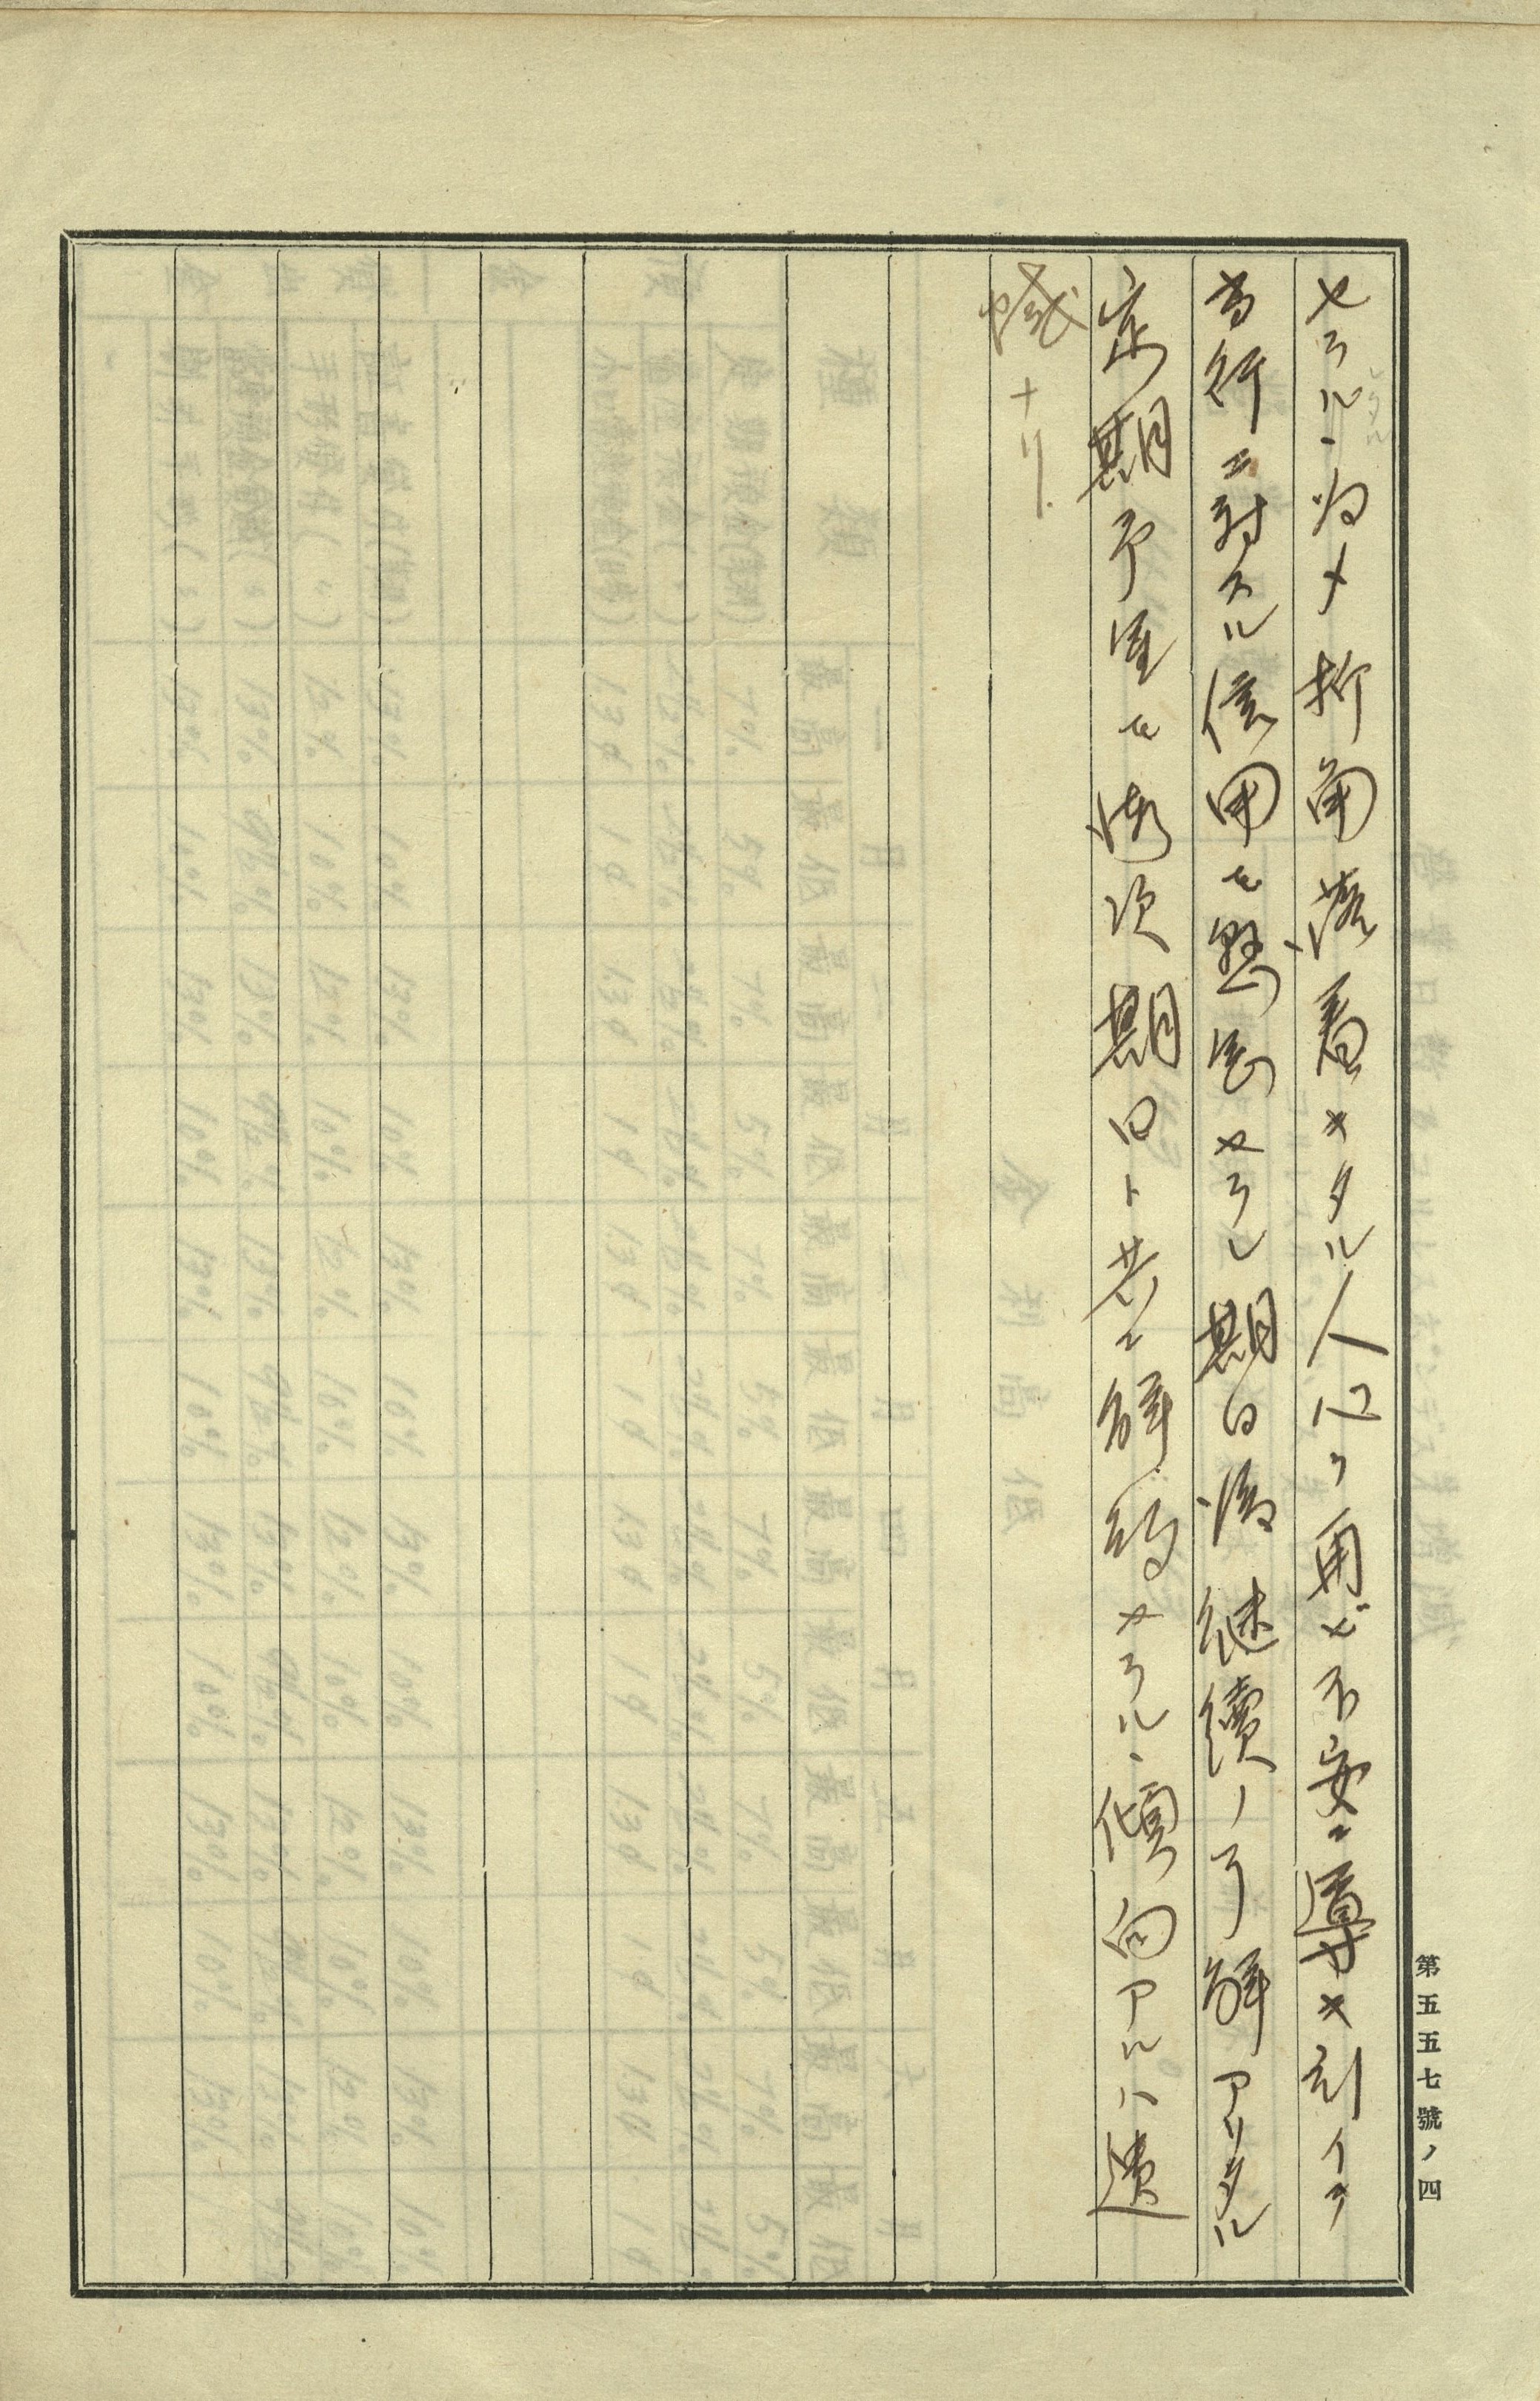 セラル、為メ折角落着キタル人心ヲ再ビ不安ニ導キ引イテ
当行ニ対スル信用ヲ懸念セラレ期日後継続ノ了解アリタル
定期予金モ漸次期日ト共ニ解約セラル、傾向アルハ遺
憾ナリ.
第五五七號ノ四